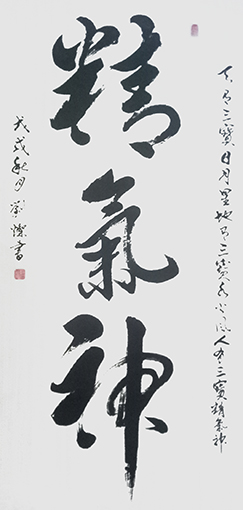 天有三寶日月星地有三寶水火風人有三寶精氣神
精氣神
戊戌秋月劉書